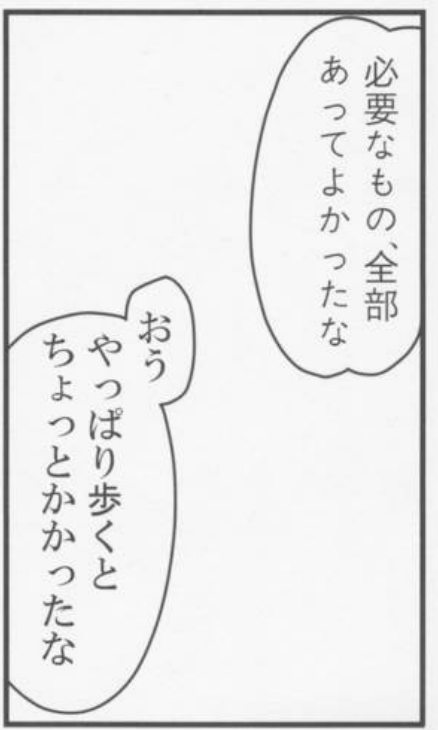 必要なもの、全部
あってよかったな
おう
やっぱり歩くと
ちょっとかかったな